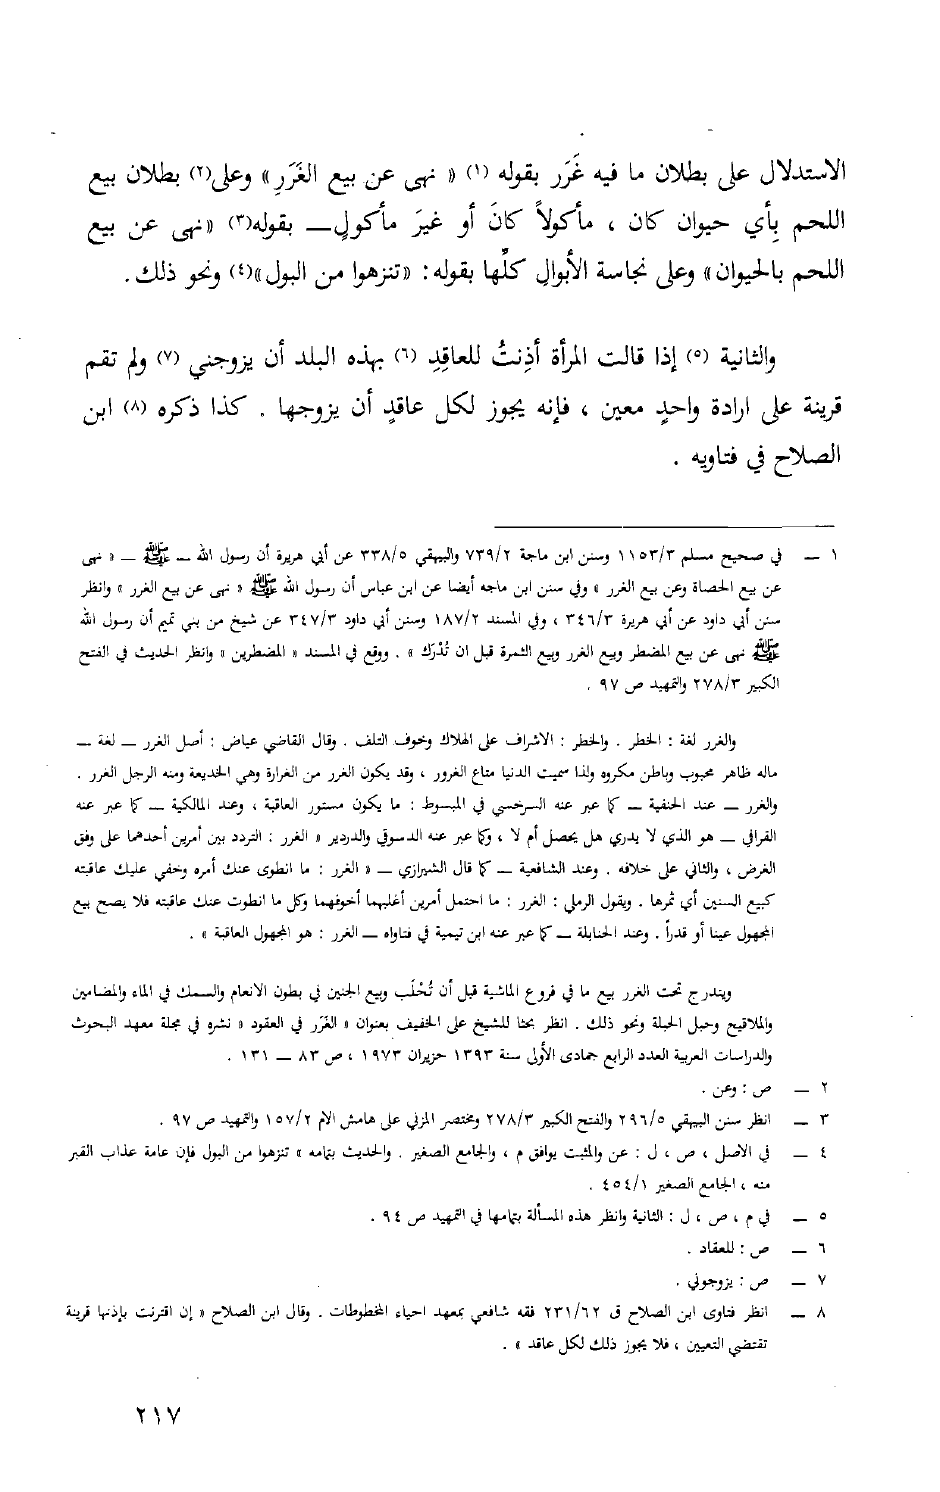 الاستدلال على بطلان ما فيه غَرَر بقوله (١) « نهى عن بيع الغَرَرِ » وعلى(٢) بطلان بيع
اللحم بِأي حيوان كان ، مأكولاً كانَ أو غيرَ مأكولٍ ــ بقوله(٣) « نهى عن بيع
اللحم بالحيوان » وعلى نجاسة الأبوالِ كلِّها بقوله : « تنزهوا من البول »(٤) ونحو ذلك .
والثانية (٥) إذا قالت المرأة أذِنتُ للعاقِدِ (٦) بهذه البلد أن يزوجني (٧) ولم تقم
قرينة على ارادة واحدٍ معين ، فإنه يجوز لكل عاقدٍ أن يزوجها . كذا ذكره (٨) ابن
الصلاح في فتاويه .
١ ــ في صحيح مسلم ١١٥٣/٣ وسنن ابن ماجة ٧٣٩/٢ والبيهقي ٣٣٨/٥ عن أبي هريرة أن رسول الله ــ ﷺ ــ « نهى
عن بيع الحصاة وعن بيع الغرر » وفي سنن ابن ماجه أيضا عن ابن عباس أن رسول الله ﷺ « نهى عن بيع الغرر » وانظر
سنن أبي داود عن أبي هريرة ٣٤٦/٣ ، وفي المسند ١٨٧/٢ وسنن أبي داود ٣٤٧/٣ عن شيخ من بني تميم أن رسول الله
ﷺ نهى عن بيع المضطر وبيع الغرر وبيع الثمرة قبل ان تُدْرَك » . ووقع في المسند « المضطرين » وانظر الحديث في الفتح
الكبير ٢٧٨/٣ والتمهيد ص ٩٧ .
والغرر لغة : الخطر . والخطر : الاشراف على الهلاك وخوف التلف . وقال القاضي عياض : أصل الغرر ــ لغة ــ
ماله ظاهر محبوب وباطن مكروه ولذا سميت الدنيا متاع الغرور ، وقد يكون الغرر من الغرارة وهي الخديعة ومنه الرجل الغرر .
والغرر ــ عند الحنفية ــ كما عبر عنه السرخسي في المبسوط : ما يكون مستور العاقبة ، وعند المالكية ــ كما عبر عنه
القرافي ــ هو الذي لا يدري هل يحصل أم لا ، وكما عبر عنه الدسوقي والدردير « الغرر : التردد بين أمرين أحدهما على وفق
الغرض ، والثاني على خلافه . وعند الشافعية ــ كما قال الشيرازي ــ « الغرر : ما انطوى عنك أمره وخفي عليك عاقبته
كبيع السنين أي ثمرها . ويقول الرملي : الغرر : ما احتمل أمرين أغلبهما أخوفهما وكل ما انطوت عنك عاقبته فلا يصح بيع
المجهول عينا أو قدراً . وعند الحنابلة ــ كما عبر عنه ابن تيمية في فتاواه ــ الغرر : هو المجهول العاقبة » .
ويندرج تحت الغرر بيع ما في فروع الماشية قبل أن تُحْلَب وبيع الجنين في بطون الانعام والسمك في الماء والمضامين
والملاقيح وحبل الحبلة ونحو ذلك . انظر بحثا للشيخ على الخفيف بعنوان « الغَرَر في العقود » نشره في مجلة معهد البحوث
والدراسات العربية العدد الرابع جمادى الأولى سنة ١٣٩٣ حزيران ١٩٧٣ ، ص ٨٣ ــ ١٣١ .
٢ ــ ص : وعن .
٣ ــ انظر سنن البيهقي ٢٩٦/٥ والفتح الكبير ٢٧٨/٣ ومختصر المزني على هامش الام ١٥٧/٢ والتمهيد ص ٩٧ .
٤ ــ في الاصل ، ص ، ل : عن والمثبت يوافق م ، والجامع الصغير . والحديث بتمامه « تنزهوا من البول فإن عامة عذاب القبر
منه ، الجامع الصغير ٤٥٤/١ .
٥ ــ في م ، ص ، ل : الثانية وانظر هذه المسألة بتمامها في التمهيد ص ٩٤ .
٦ ــ ص : للعقاد .
٧ ــ ص : يزوجوني .
٨ ــ انظر فتاوى ابن الصلاح ق ٢٣١/٦٢ فقه شافعي بمعهد احياء المخطوطات . وقال ابن الصلاح « إن اقترنت بإذنها قرينة
تقتضي التعيين ، فلا يجوز ذلك لكل عاقد » .
٢١٧